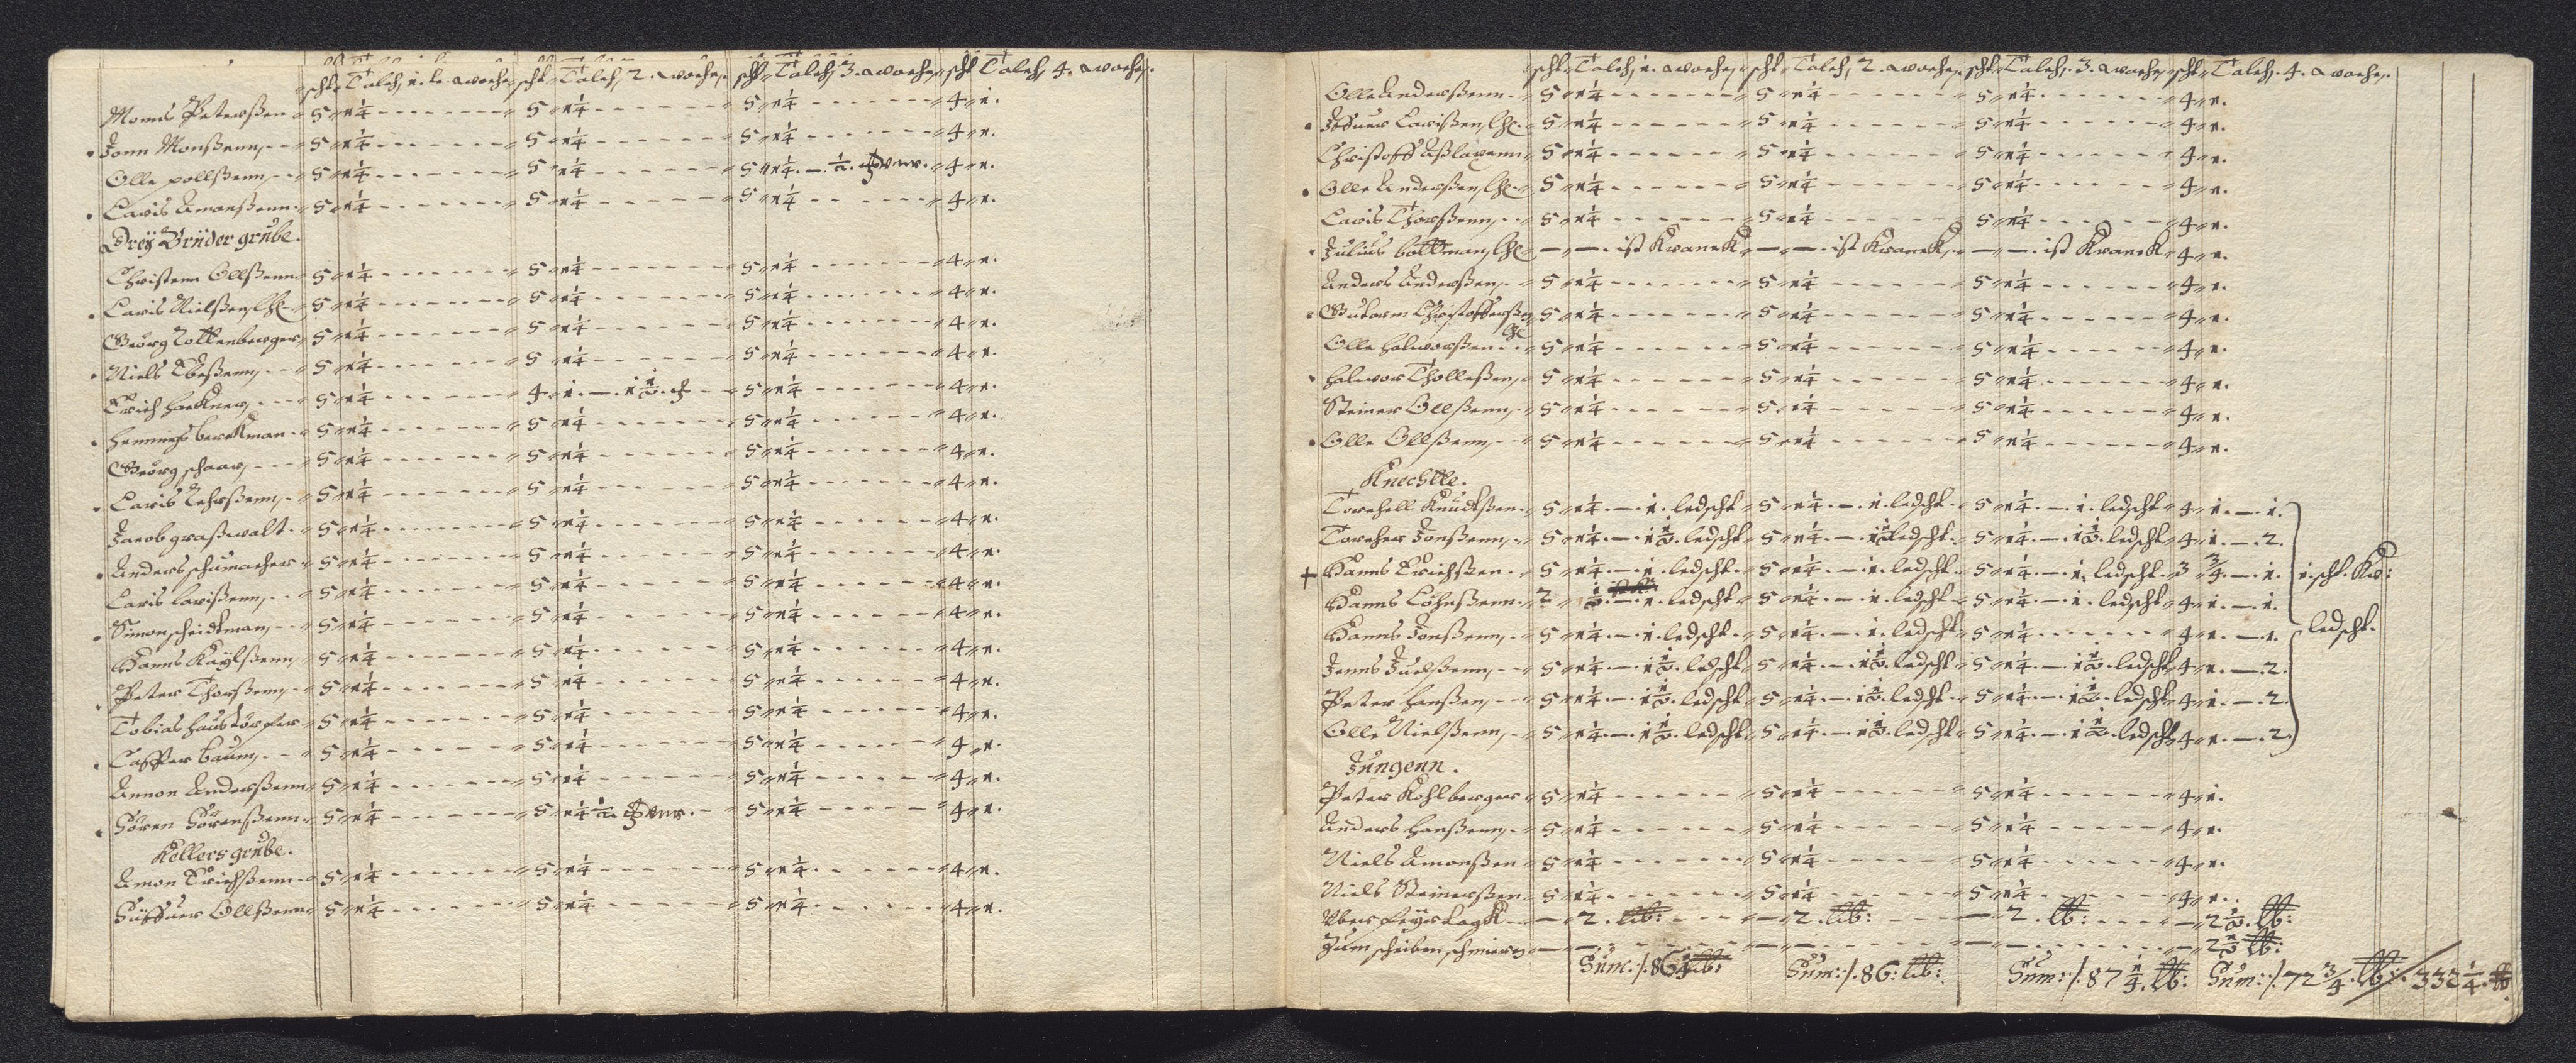 scht Talch, 1. te. woche, scht Talch, 2. woche, scht Talch, 3. woche, scht Talch, 4. woche.
Monns Peterßen 5 1¼ 5 1¼ 5 1¼ 4 1.
Jonn Monßenn, 5 1¼ 5 1¼ 5 1¼ 4 1.
Olle pollßenn, 5 1¼ 5 1¼ 5 1¼ — ½. 4 1.
Laris Amonßenn 5 1¼ 5 1¼ 5 1¼ 4 1.
Dreÿ Brüder grube.
Christenn Ollßenn 5 1¼ 5 1¼ 5 1¼ 4 1.
Laris Nielßen, 5 1¼ 5 1¼ 5 1¼ 4 1.
Georg Rottenberger 5 1¼ 5 1¼ 5 1¼ 4 1.
Niels Ebeßenn, 5 1¼ 5 1¼ 5 1¼ 4 1.
Erich hackney, 5 1¼ 4 1. — 1½. 5 1¼ 4 1.
Hennings berckman 5 1¼ 5 1¼ 5 1¼ 4 1.
Georg schaar, 5 1¼ 5 1¼ 5 1¼ 4 1.
Laris Lehrßenn, 5 1¼ 5 1¼ 5 1¼ 4 1.
Jacob graßwalt 5 1¼ 5 1¼ 5 1¼ 4 1.
Anders schumacher 5 1¼ 5 1¼ 5 1¼ 4 1.
Laris larißenn, 5 1¼ 5 1¼ 5 1¼ 4 1.
Simon scheidtman, 5 1¼ 5 1¼ 5 1¼ 4 1.
Hanns Kaÿlßenn, 5 1¼ 5 1¼ 5 1¼ 4 1.
Peter Thorßenn, 5 1¼ 5 1¼ 5 1¼ 4 1.
Tobias hausdörffer 5 1¼ 5 1¼ 5 1¼ 4 1.
Casper baum, 5 1¼ 5 1¼ 5 1¼ 4 1.
Amon Anderßenn 5 1¼ 5 1¼ 5 1¼ 4 1.
Sören Sörenßenn 5 1¼ 5 1¼ ½. 5 1¼ 4 1.
Kellers grube.
Amon Erichßenn 5 1¼ 5 1¼ 5 1¼ 4 1.
Ollßenn 5 1¼ 5 1¼ 5 1¼ 4 1.
scht Talch, 1. woche, scht Talch, 2. woche, scht Talch, 3. woche, scht Talch, 4. woche.
Olle Anderßenn 5 1¼ 5 1¼ 5 1¼ 4 1.
Larißen, 5 1¼ 5 1¼ 5 1¼ 4 1.
Christoff Aßlaxenn 5 1¼ 5 1¼ 5 1¼ 4 1.
Olle Anderßen, 5 1¼ 5 1¼ 5 1¼ 4 1.
Laris Thorßenn, 5 1¼ 5 1¼ 5 1¼ 4 1.
Julius boltman, — — . ist Kranck — — . ist Kranck, — — . ist Kranck 4 1.
Anders Anderßen, 5 1¼ 5 1¼ 5 1¼ 4 1.
Gutorm Christofferßen 5 1¼ 5 1¼ 5 1¼ 4 1.
Olle halworßen 5 1¼ 5 1¼ 5 1¼ 4 1.
halwor Tholleßen, 5 1¼ 5 1¼ 5 1¼ 4 1.
Steiner Ollßenn, 5 1¼ 5 1¼ 5 1¼ 4 1.
Olle Ollßenn, 5 1¼ 5 1¼ 5 1¼ 4 1.
Knechtte.
Torchell Knudtßen 5 1¼ — 1. ledscht 5 1¼ — 1. ledscht 5 1¼ — 1. ledscht 4 1. — 1.
Torcher Jonßenn, 5 1¼ — 1½. ledscht 5 1¼ — 1½ ledscht 5 1¼ — 1½. ledscht 4 1. — 2.
+ Hanns Erichßen 5 1¼ — 1. ledscht 5 1¼ — 1. ledscht 5 1¼ — 1. ledscht 3 ¾ — 1. 1. scht. Kr:
Hanns Löhnßenn 2 ½ — 1. ledscht 5 1¼ — 1. ledscht 5 1¼ — 1. ledscht 4 1. — 1.
Hanns Jonßenn, 5 1¼ — 1. ledscht 5 1¼ — 1. ledscht 5 1¼ 4 1. — 1. ledscht.
Jenns Juelßenn, 5 1¼ — 1½. ledscht 5 1¼ — 1½. ledscht 5 1¼ — 1½. ledscht 4 1. — 2.
Peter Hanßen, 5 1¼ — 1½. ledscht 5 1¼ — 1½. ledscht 5 1¼ — 1½. ledscht 4 1. — 2.
Olle Nielßenn, 5 1¼ — 1½. ledscht 5 1¼ — 1½. ledscht 5 1¼ — 1½. ledscht 4 1. — 2.
Jungenn.
Peter Kohlberger 5 1¼ 5 1¼ 5 1¼ 4 1.
Anders hanßenn, 5 1¼ 5 1¼ 5 1¼ 4 1.
Niels Amonßen 5 1¼ 5 1¼ 5 1¼ 4 1.
Niels Steinerßen 5 1¼ 5 1¼ 5 1¼ 4 1.
— 2. lib: — 2. lib: — 2. lb: — 2½. lb:
Zum scheiben schmieren — — — — — — — 2½ lb:
Sum: /. 86¼ lib: Sum: /. 86: lib: Sum: /. 87¼. lb: Sum: /. 72¾. lb: /. 332¼. lb